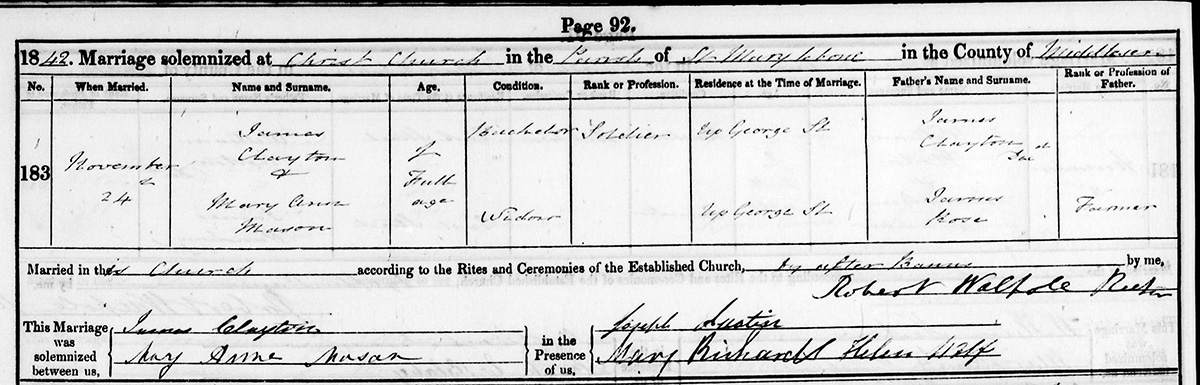 Page 92.
1842. Marriage solemnized at Christ Church in the Parish of St Marylebone in the County of Middlesex
No. When Married. Name and Surname. Age. Condition. Rank or Profession. Residence at the Time of Marriage. Father's Name and Surname. Rank or Profession of Father.
183 November 24 James Clayton & Of Full age Bachelor Soldier Up George St James Clayton
Mary Ann Mason Widow Up George St James Rose Farmer
Married in this Church according to the Rites and Ceremonies of the Established Church, by after Banns by me,
Robert Walpole Rector
This Marriage was solemnized between us, James Clayton in the Presence of us, Joseph Austin
Mary Anne Mason Mary Richards Helen